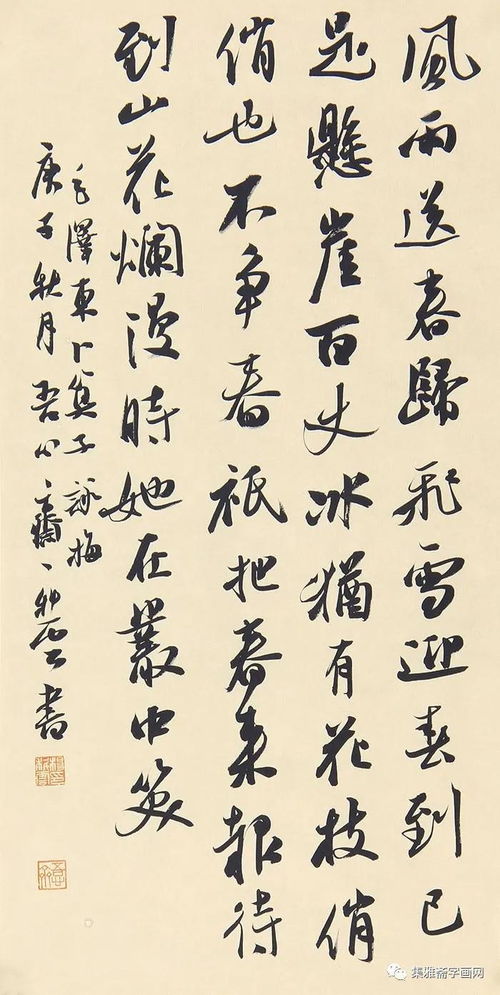 風雨送春歸飛雪迎春到已
是懸崖百丈冰猶有花枝俏
俏也不爭春祇把春來報待
到山花爛漫時她在叢中笑
毛澤東卜算子詠梅
庚子秋月吾心齋書
集雅斋字画网